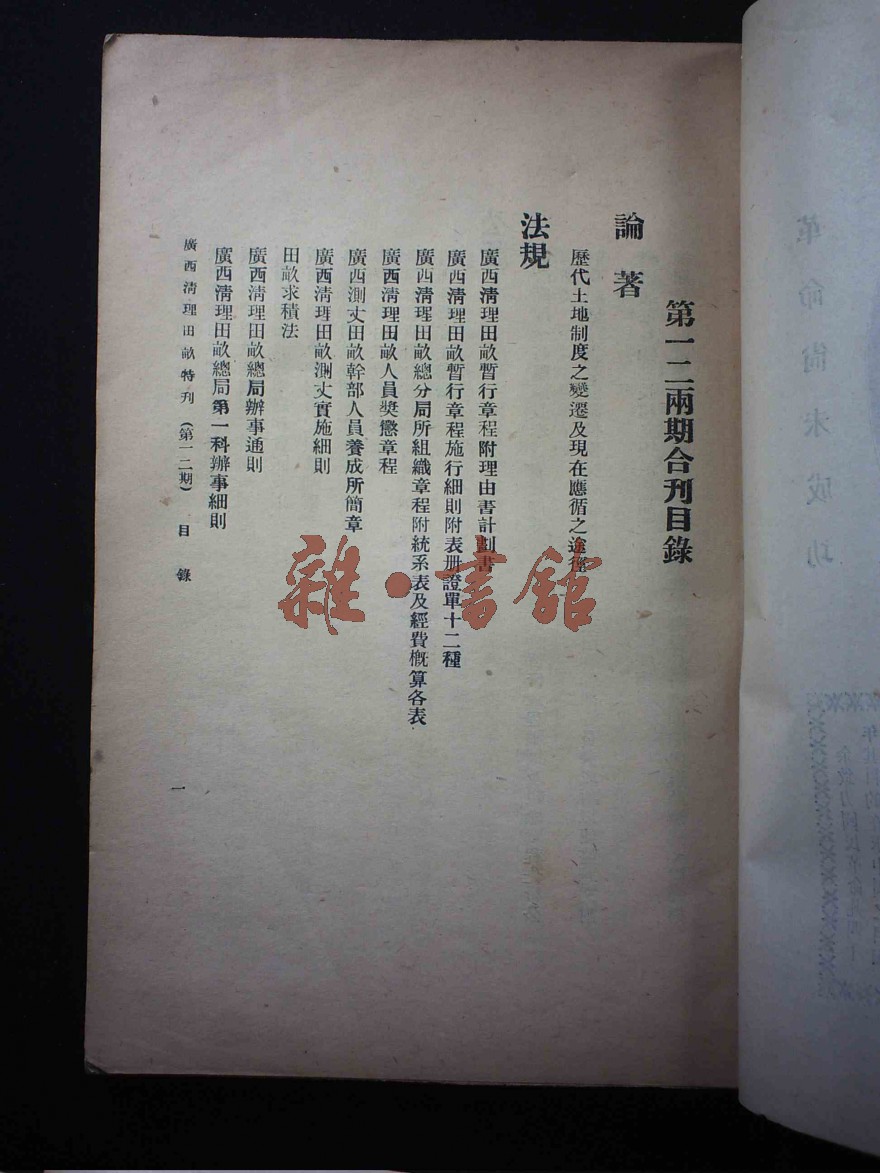 第一二兩期合刊目錄
論著
歷代土地制度之變遷及現在應循之途徑
法規
廣西淸理田畝暫行章程附理由書計劃書
廣西淸理田畝暫行章程施行細則附表册證單十二種
廣西淸理田畝總分局所組織章程附統系表及經費概算各表
廣西淸理田畝人員奬懲章程
廣西測丈田畝幹部人員養成所簡章
廣西淸理田畝測丈實施細則
田畝求積法
廣西淸理田畝總局辦事通則
廣西淸理田畝總局第一科辦事細則
廣西淸理田畝特刊（第一二期） 目錄
一
雜·書館
革命尙未成功